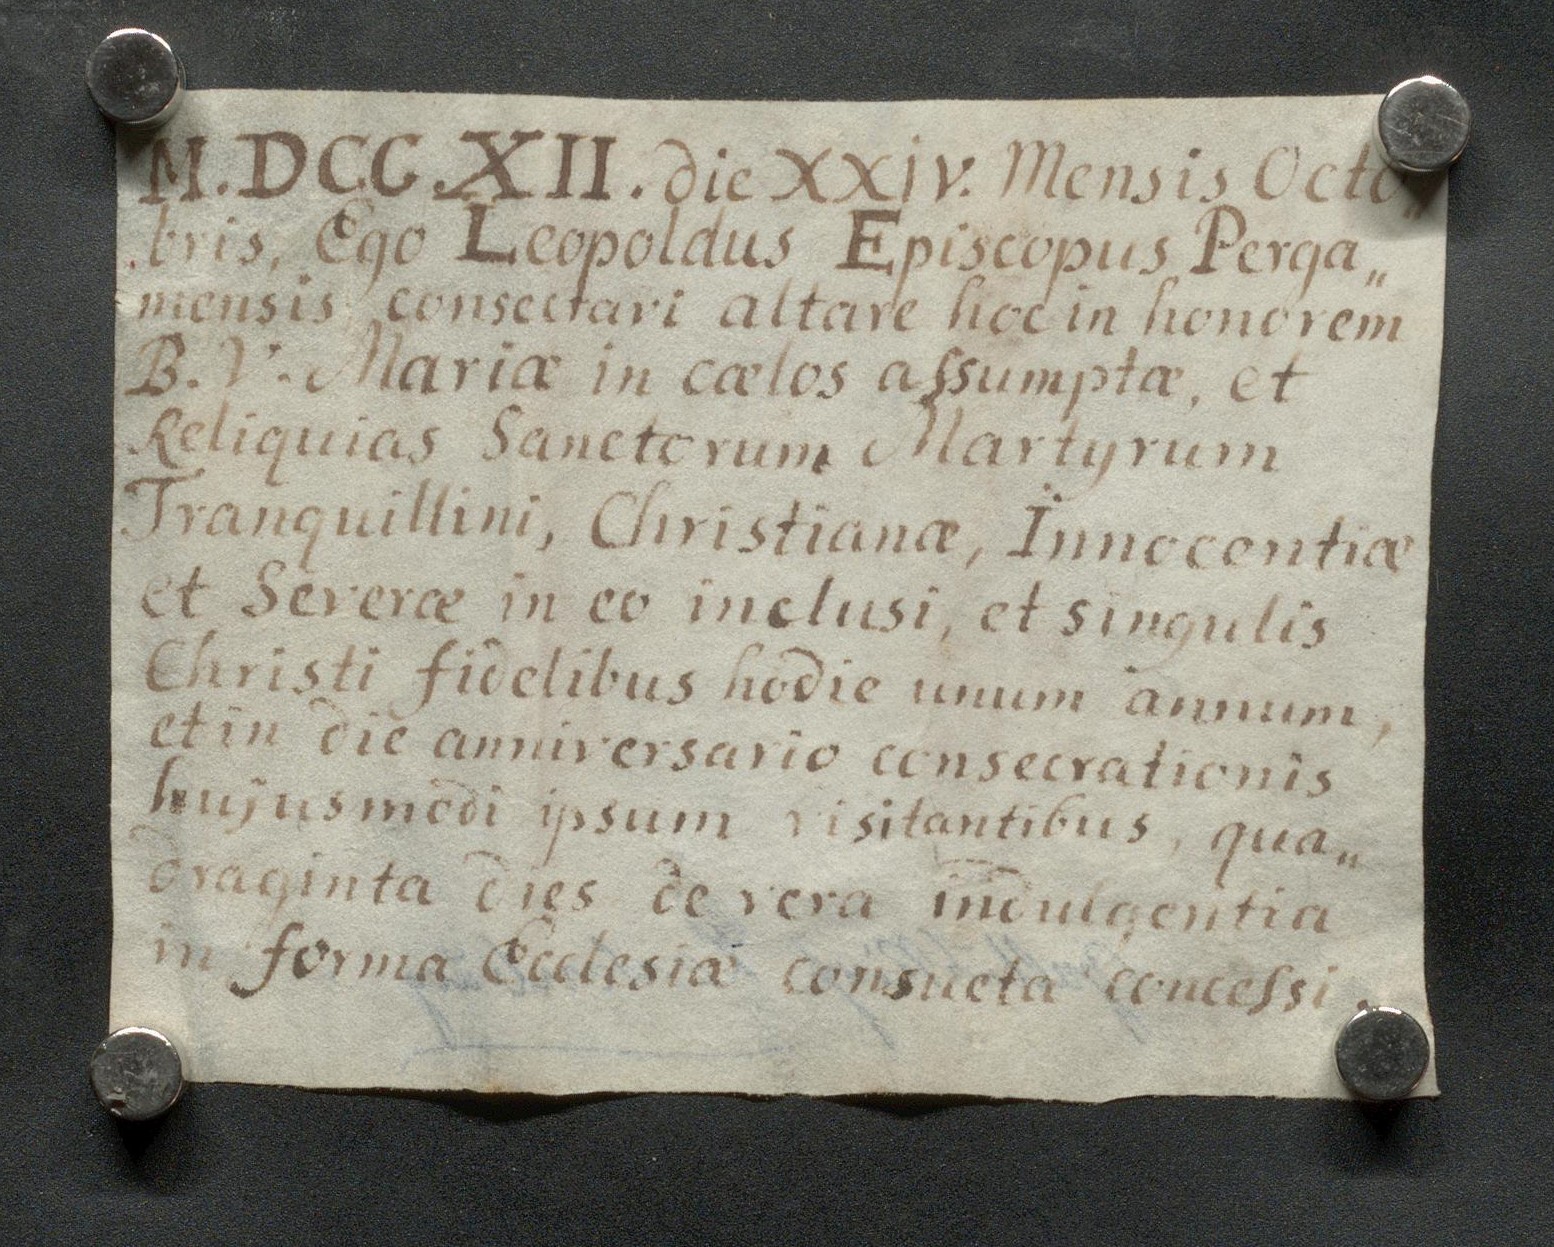 M.DCCXII. die XXjv. Mensis Octo„
bris, Ego Leopoldus Episcopus Perga„
mensis, consecravi altare hoc in honorem
B. V. Mariæ in cœlos aſsumptæ, et
Reliquias Sanctorum Martyrum
Tranquillini, Christianæ, Innocentiæ
et Severæ in eo inclusi, et singulis
Christi fidelibus hodie unum annum,
et in die anniversario consecrationis
hujusmodi ipsum visitantibus, qua„
draginta dies de vera indulgentia
in forma Ecclesiæ consueta conceſsi.